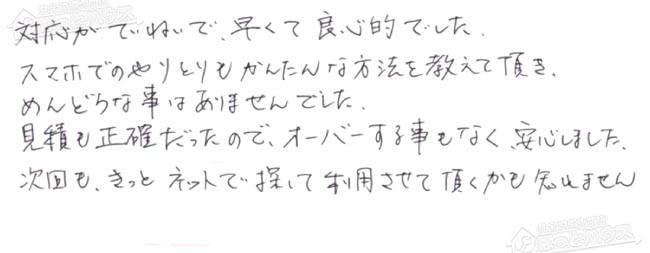 対応がていねいで、早くて良心的でした。
スマホでのやりとりもかんたんな方法を教えて頂き、
めんどうな事はありませんでした。
見積も正確だったので、オーバーする事もなく、安心しました。
次回も、きっとネットで探して利用させて頂くかも知れません